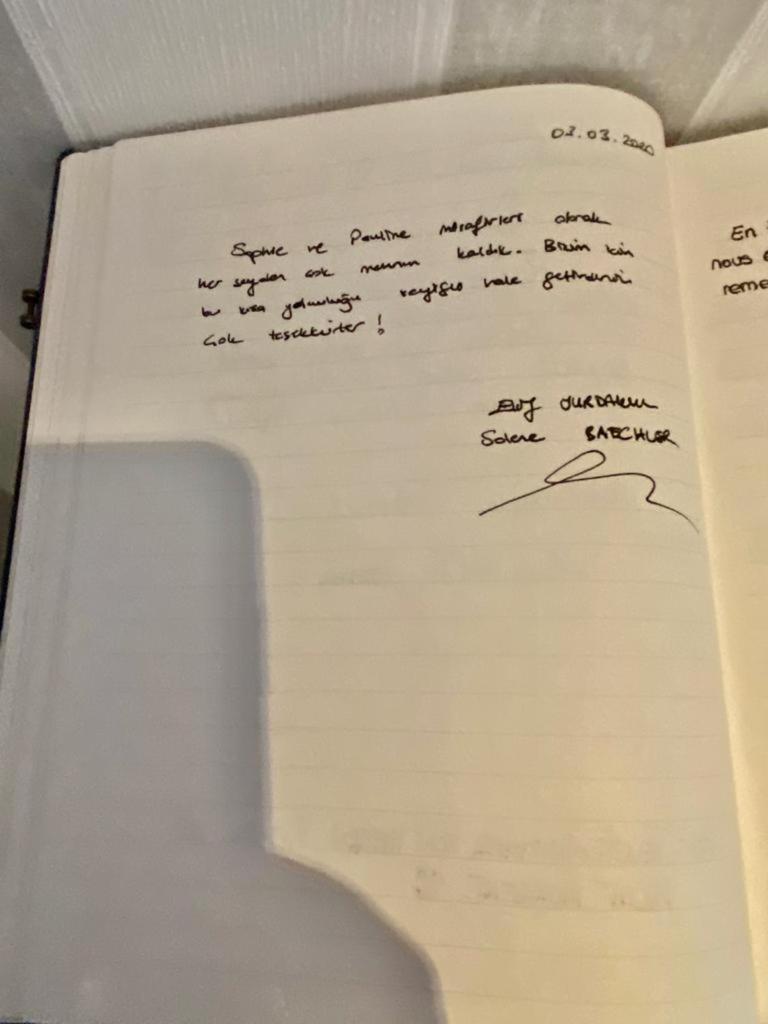 03.03.2020
Sophie ve Pauline misafirleri olarak
her şeyden çok memnun kaldık. Bizim için
bu kısa yolculuğu keyifli hale getirdiniz.
Çok teşekkürler!
Elif YURDAKUL
Solene BAECHLER
En
nous
reme